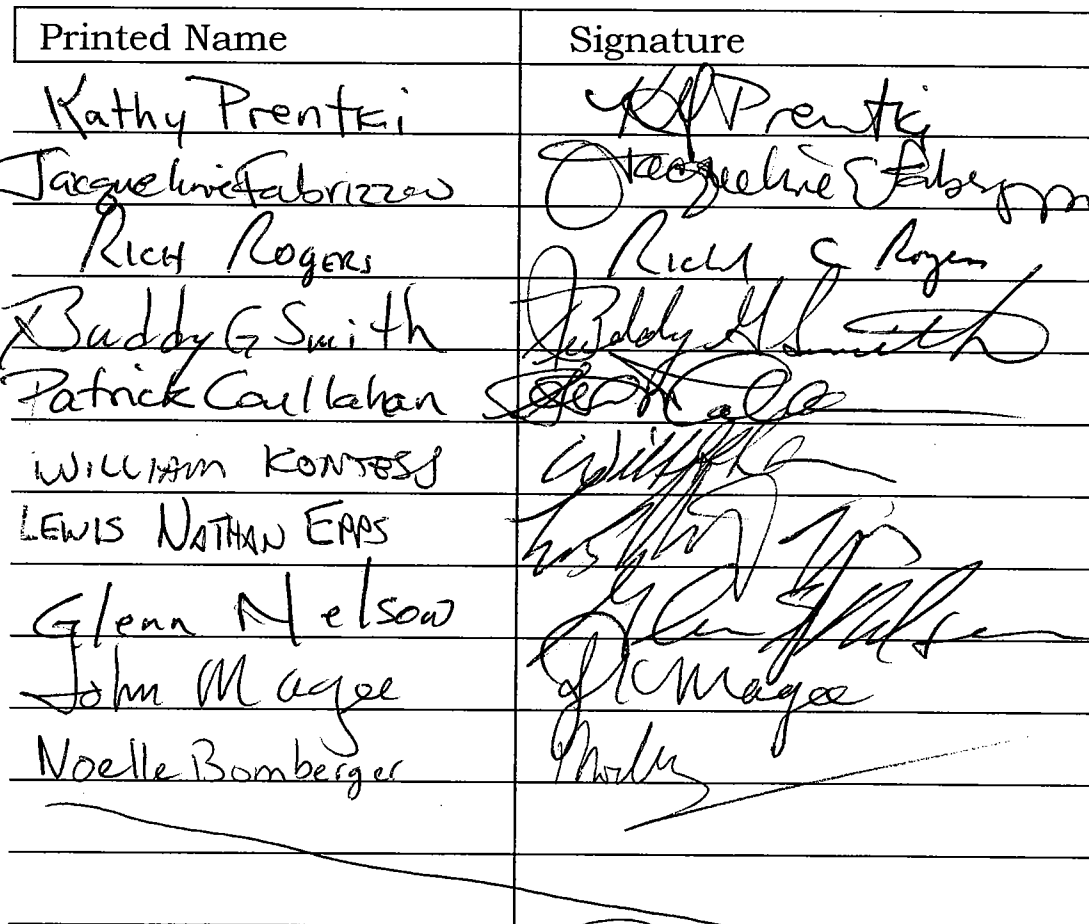 Printed Name Signature
Kathy Prentki Prentki
Jacqueline Fabrizzio Jacqueline E
Rich Rogers Richd C Rogers
Buddy G Smith Buddy G Smith
Patrick Coullahan
William Kontess
Lewis Nathan Epps
Glenn Nelson Glenn Nelson
John Magee JK Magee
Noelle Bomberger